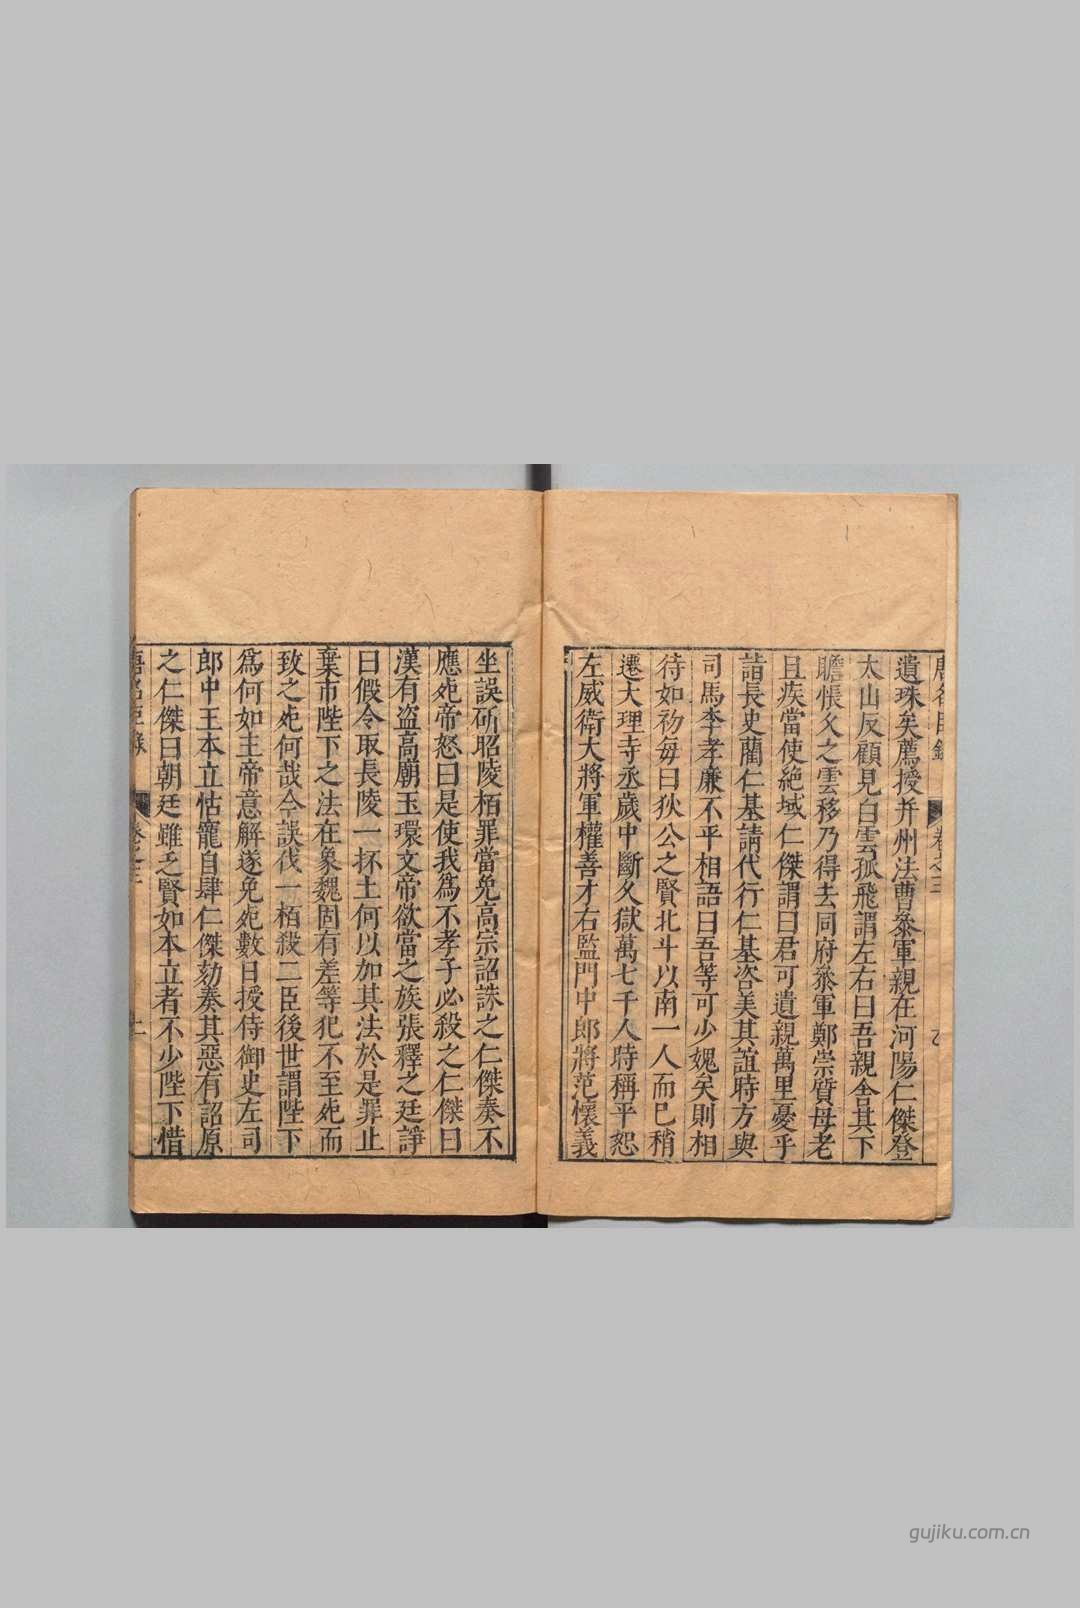 唐名臣錄
卷之三
遺珠矣薦授并州法曹參軍親在河陽仁傑登
太山反顧見白雲孤飛謂左右曰吾親舍其下
瞻悵久之雲移乃得去同府參軍鄭崇質母老
且疾當使絶域仁傑謂曰君可遺親萬里憂乎
詣長史藺仁基請代行仁基咨美其誼時方與
司馬李孝廉不平相語曰吾等可少媿矣則相
待如初每曰狄公之賢北斗以南一人而已稍
遷大理寺丞歲中斷久獄萬七千人時稱平恕
左威衛大將軍權善才右監門中郎將范懷義
坐誤斫昭陵栢罪當免高宗詔誅之仁傑奏不
應死帝怒曰是使我爲不孝子必殺之仁傑曰
漢有盜高廟玉環文帝欲當之族張釋之廷諍
曰假令取長陵一抔土何以加其法於是罪止
棄市陛下之法在象魏固有差等犯不至死而
致之死何哉今誤伐一栢殺二臣後世謂陛下
爲何如主帝意解遂免死數日授侍御史左司
郎中王本立怙寵自肆仁傑劾奏其惡有詔原
之仁傑曰朝廷雖乏賢如本立者不少陛下惜
唐名臣錄
卷之三
gujiku.com.cn